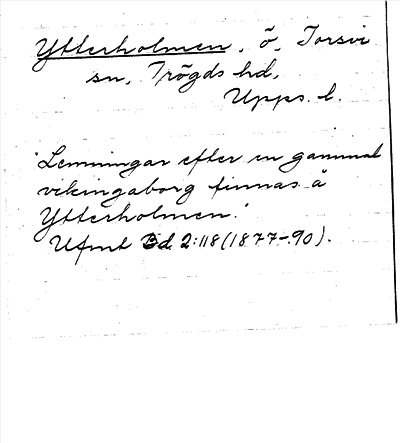 Ytterholmen, ö, Torsvi
sn, Trögds hd,
Upps. l.
"Lemningar efter en gammal
vikingaborg finnas å
Ytterholmen."
Ufmt Bd. 2:118 (1877-90).